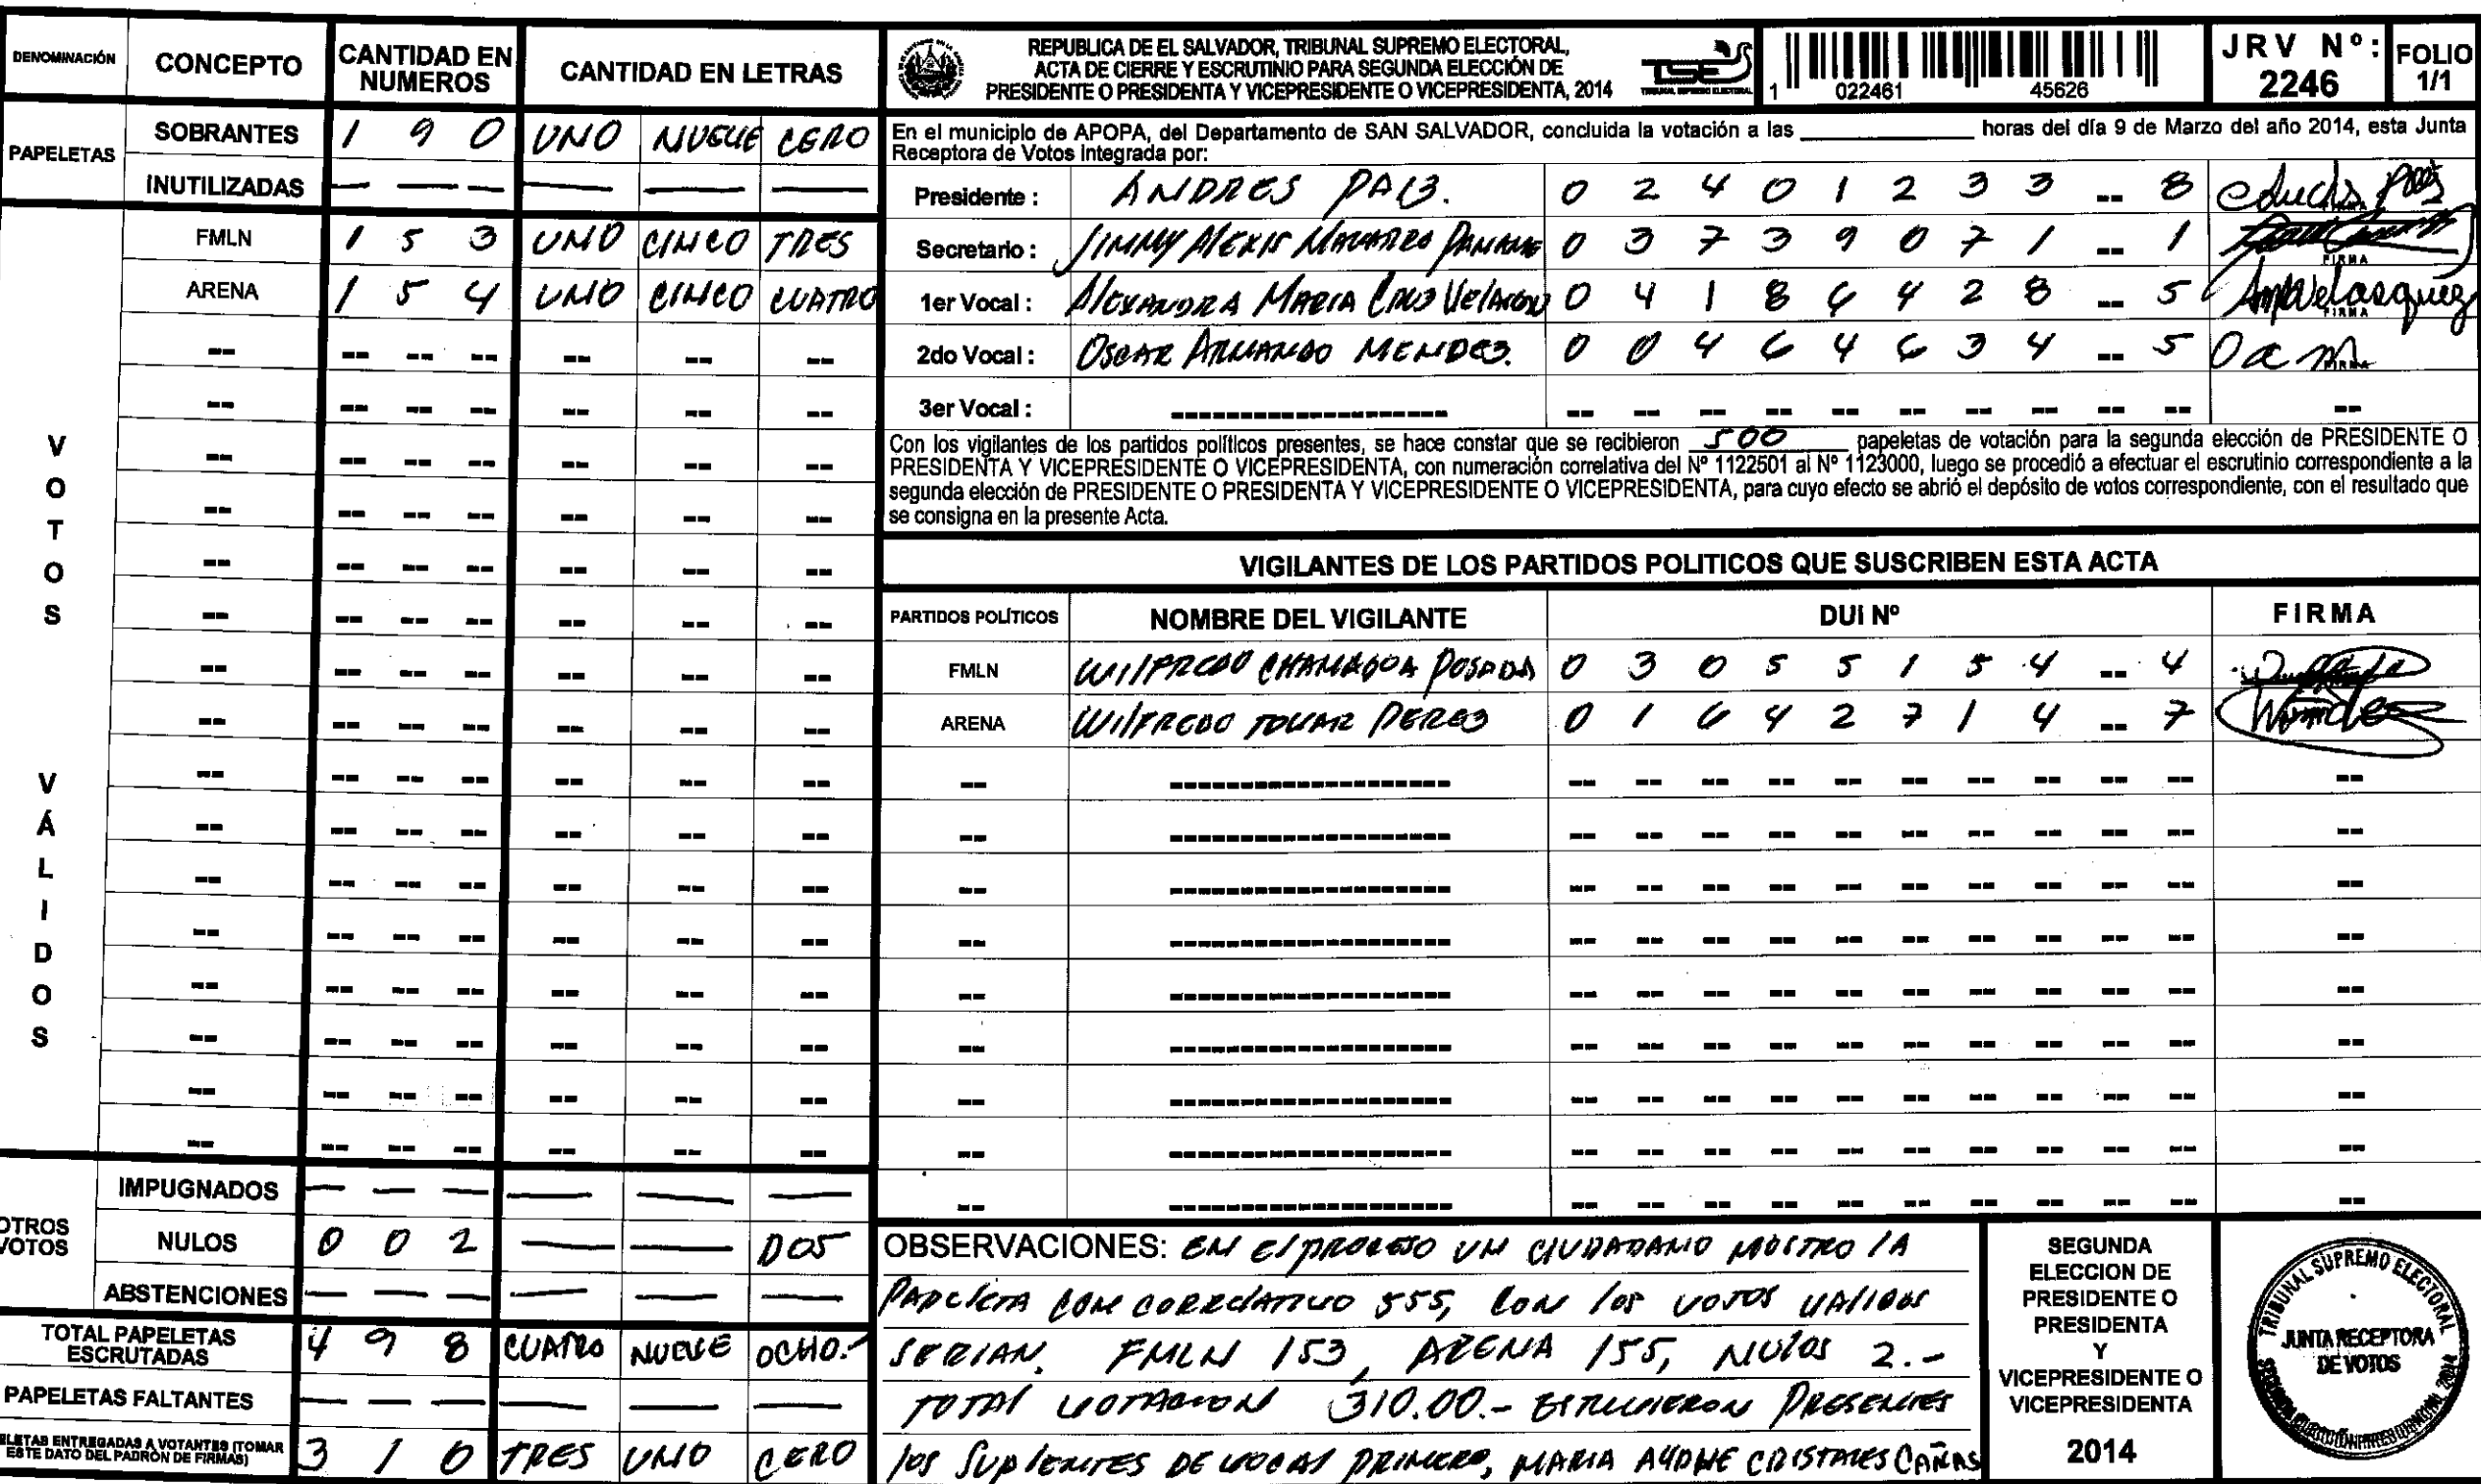 DENOMINACIÓN CONCEPTO CANTIDAD EN NUMEROS CANTIDAD EN LETRAS
PAPELETAS
SOBRANTES 1 9 0 UNO NUEVE CERO
INUTILIZADAS — — — — — —
VOTOS VÁLIDOS
FMLN 1 5 3 UNO CINCO TRES
ARENA 1 5 4 UNO CINCO CUATRO
OTROS VOTOS
IMPUGNADOS — — — — — —
NULOS 0 0 2 — — DOS
ABSTENCIONES — — — — — —
TOTAL PAPELETAS ESCRUTADAS 4 9 8 CUATRO NUEVE OCHO.-
PAPELETAS FALTANTES — — — — — —
ELETAS ENTREGADAS A VOTANTES (TOMAR
ESTE DATO DEL PADRÓN DE FIRMAS) 3 1 0 TRES UNO CERO
REPUBLICA DE EL SALVADOR, TRIBUNAL SUPREMO ELECTORAL,
ACTA DE CIERRE Y ESCRUTINIO PARA SEGUNDA ELECCIÓN DE
PRESIDENTE O PRESIDENTA Y VICEPRESIDENTE O VICEPRESIDENTA, 2014
TSE
TRIBUNAL SUPREMO ELECTORAL
1 022461 45626
JRV Nº: 2246
FOLIO 1/1
En el municipio de APOPA, del Departamento de SAN SALVADOR, concluida la votación a las ____ horas del día 9 de Marzo del año 2014, esta Junta
Receptora de Votos integrada por:
Presidente : ANDRES PAIZ. 0 2 4 0 1 2 3 3 -- 8
Secretario : JIMMY ALEXIS NAVARRO 0 3 7 3 9 0 7 1 -- 1 FIRMA
1er Vocal : ALEXANDRA MARIA CRUZ 0 4 1 8 6 4 2 8 -- 5 AmVelasquez FIRMA
2do Vocal : OSCAR ARMANDO MENDEZ. 0 0 4 6 4 6 3 4 -- 5 Oam FIRMA
3er Vocal : -------------------
Con los vigilantes de los partidos políticos presentes, se hace constar que se recibieron 500 papeletas de votación para la segunda elección de PRESIDENTE O
PRESIDENTA Y VICEPRESIDENTE O VICEPRESIDENTA, con numeración correlativa del Nº 1122501 al Nº 1123000, luego se procedió a efectuar el escrutinio correspondiente a la
segunda elección de PRESIDENTE O PRESIDENTA Y VICEPRESIDENTE O VICEPRESIDENTA, para cuyo efecto se abrió el depósito de votos correspondiente, con el resultado que
se consigna en la presente Acta.
VIGILANTES DE LOS PARTIDOS POLITICOS QUE SUSCRIBEN ESTA ACTA
PARTIDOS POLÍTICOS NOMBRE DEL VIGILANTE DUI Nº FIRMA
FMLN WILFREDO CHAMAGUA POSADA 0 3 0 5 5 1 5 4 -- 4
ARENA WILFREDO TOVAR PEREZ 0 1 6 4 2 7 1 4 -- 7
OBSERVACIONES: EN El PROCESO UN CIUDADANO MOSTRO lA
PAPELETA CON CORRELATIVO 555, CON los VOTOS VALIDOS
SERIAN. FMLN 153, ARENA 155, NULOS 2.-
TOTAL VOTACION 310.00.- ESTUVIERON PRESENTES
los SUPLENTES DE VOCAL PRIMERO, MARIA CRISTALES CAÑAS
SEGUNDA
ELECCION DE
PRESIDENTE O
PRESIDENTA
Y
VICEPRESIDENTE O
VICEPRESIDENTA
2014
TRIBUNAL SUPREMO ELECTORAL
JUNTA RECEPTORA
DE VOTOS